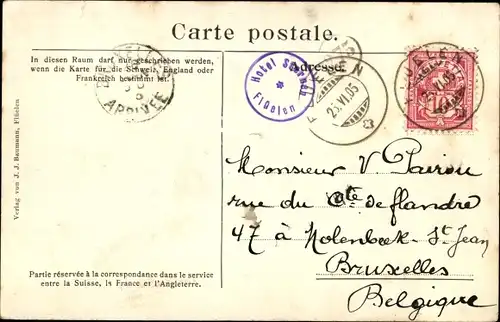 Carte postale.
In diesen Raum darf nur geschrieben werden,
wenn die Karte für die Schweiz, England oder
Frankreich bestimmt ist.
Adresse.
ARRIVÉE
Hotel
Flüelen
FLÜELEN
25.VI.05
Verlag von J. J. Baumann, Flüelen.
Monsieur V
rue du Cte de flandre
47 à Molenbeek-St Jean
Bruxelles
Belgique
Partie réservée à la correspondance dans le service
entre la Suisse, la France et l'Angleterre.